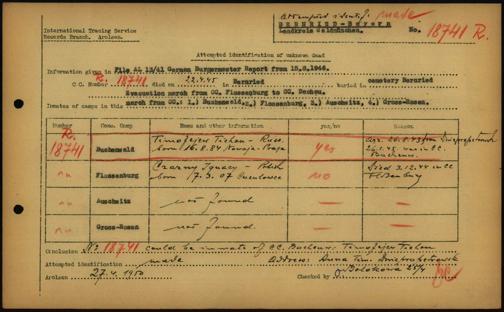 International Tracing Service
Records Branch. Arolsen.
Attempted identif. made
BERNRIED-Bayern
Landkreis Waldmünchen.
No. 18741 R.
Attempted identification of unknown dead
Information given in File AL 13/41 German Burgomaster Report from 15.8.1946.
C.C. Number R. 18741 died on 22.4.45 Bernried buried in cemetery Bernried
Evacuation march from CC. Flossenburg to CC. Dachau.
Inmates of camps in march from CC.: 1.) Buchenwald, 2.) Flossenburg, 3.) Auschwitz, 4.) Gross-Rosen.
Number Conc. Camp Name and other information yes/no Reason
R. 18741 Buchenwald Timofejew Tichon - Russ. born 16.8.84 yes arr. 20.8.43 from Dnjepropetrowsk
26.1.45 was in CC. Buchenw.
" Flossenburg Czarny Ignacy - Polish born 17.3.07 no Died 3.12.44 in CC Flossenburg
" Auschwitz not found — —
" Gross-Rosen not found — —
Conclusion No. 18741 could be inmate of CC. Buchenw. Timofejew Tichon
Attempted identification made Address: Anna Tim. Dnjepropetrowsk
Arolsen 27.4.1950 Checked by